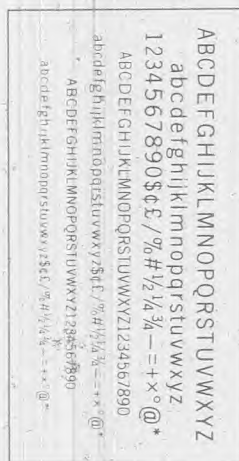 ABCDEFGHIJKLMNOPQRSTUVWXYZ
abcdefghijklmnopqrstuvwxyz
1234567890$¢£/%#½¼¾—=+×°@*
ABCDEFGHIJKLMNOPQRSTUVWXYZ1234567890
abcdefghijklmnopqrstuvwxyz$¢£/%#½¼¾—=+×°@*
ABCDEFGHIJKLMNOPQRSTUVWXYZ1234567890
abcdefghijklmnopqrstuvwxyz$¢£/%#½¼¾—=+×°@*